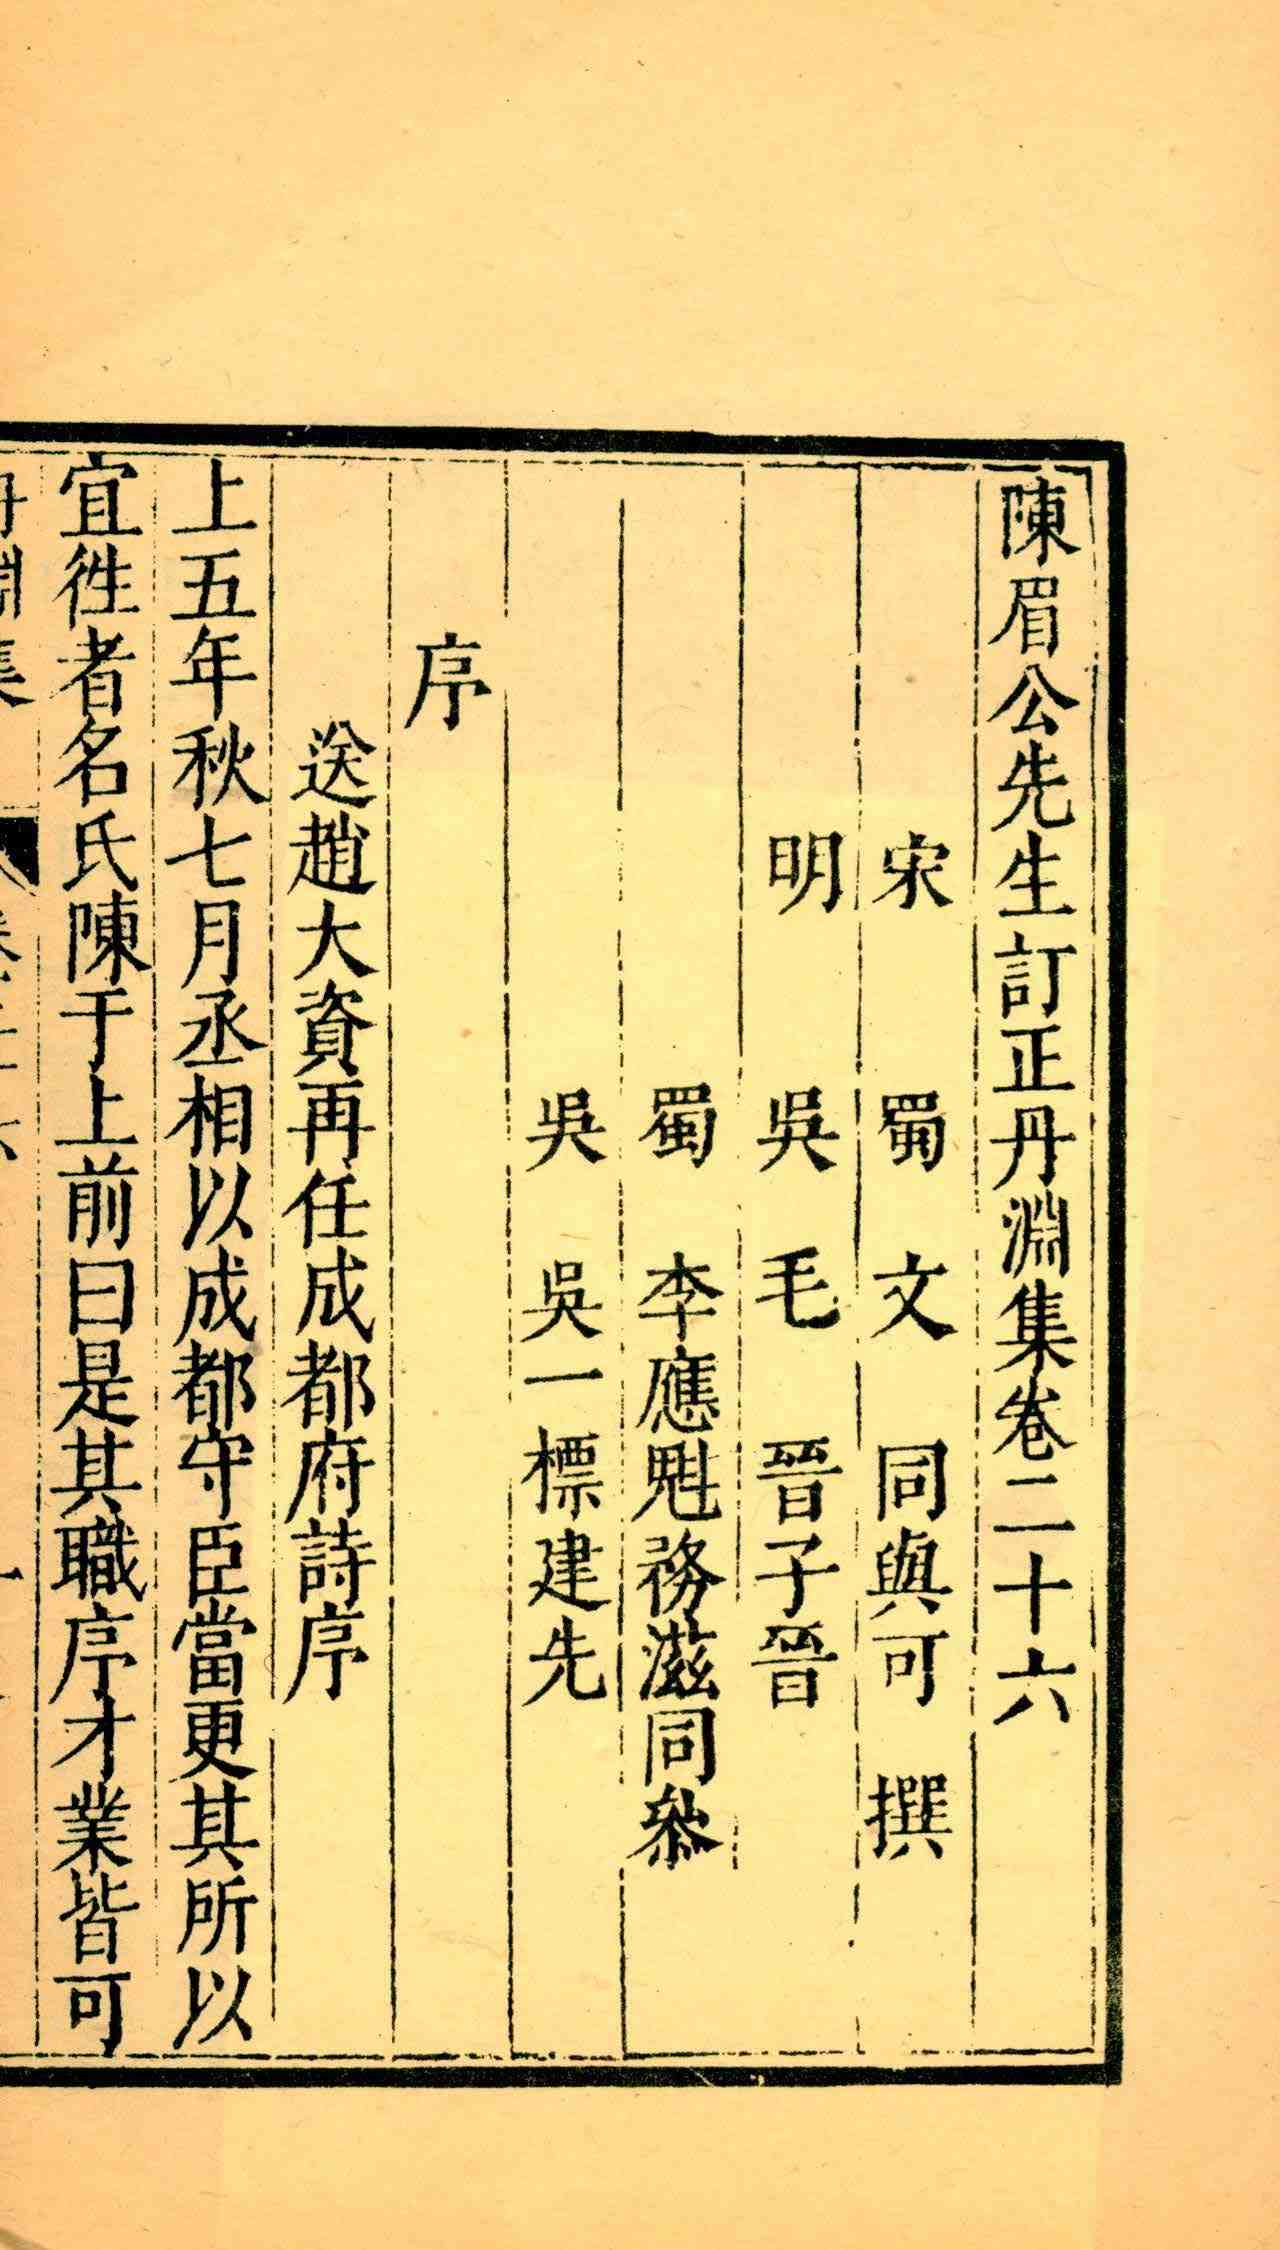 陳眉公先生訂正丹淵集卷二十六
宋 蜀 文 同與可 撰
明 吳 毛 晉子晉
蜀 李應魁務滋同叅
吳 吳一標建先
序
送趙大資再任成都府詩序
上五年秋七月丞相以成都守臣當更其所以
宜徃者名氏陳于上前曰是其職序才業皆可
丹淵集 卷二十六 一